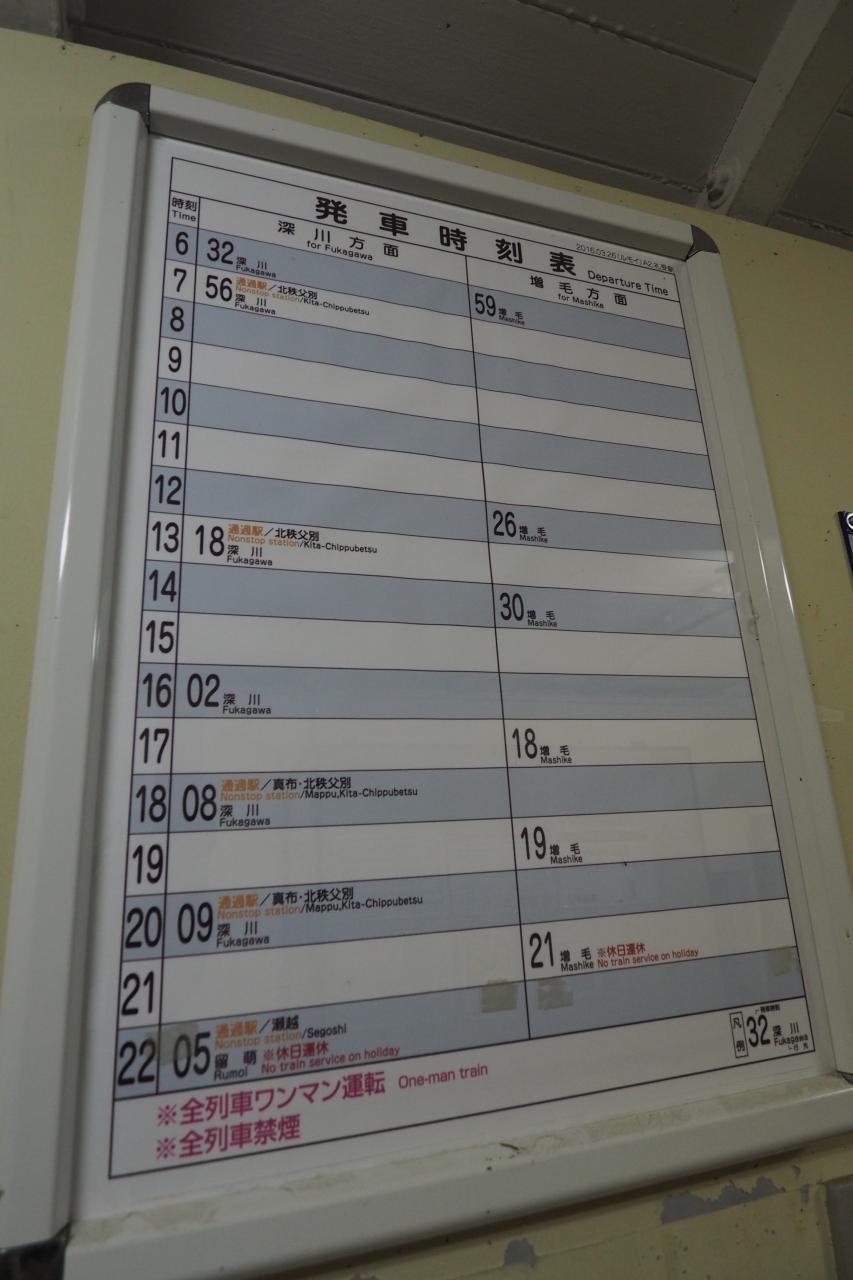 発車時刻表 Departure Time
2016.03.26(ルモイ)A2.礼受駅
時刻
Time
深川方面
for Fukagawa
増毛方面
for Mashike
6 32 深川 59 増毛
Fukagawa Mashike
7 56 通過駅／北秩父別
Nonstop station/Kita-Chippubetsu
深川
Fukagawa
8
9
10
11
12 26 増毛
Mashike
13 18 通過駅／北秩父別
Nonstop station/Kita-Chippubetsu
深川
Fukagawa
14 30 増毛
Mashike
15
16 02 深川
Fukagawa
17 18 増毛
Mashike
18 08 通過駅／真布・北秩父別
Nonstop station/Mappu,Kita-Chippubetsu
深川
Fukagawa
19 19 増毛
Mashike
20 09 通過駅／真布・北秩父別
Nonstop station/Mappu,Kita-Chippubetsu
深川
Fukagawa
21 21 増毛 ※休日運休
Mashike No train service on holiday
22 05 通過駅／瀬越
Nonstop station/Segoshi
留萌 ※休日運休
Rumoi No train service on holiday
凡例 発車時刻
32 深川
Fukagawa
行先
※全列車ワンマン運転 One-man train
※全列車禁煙